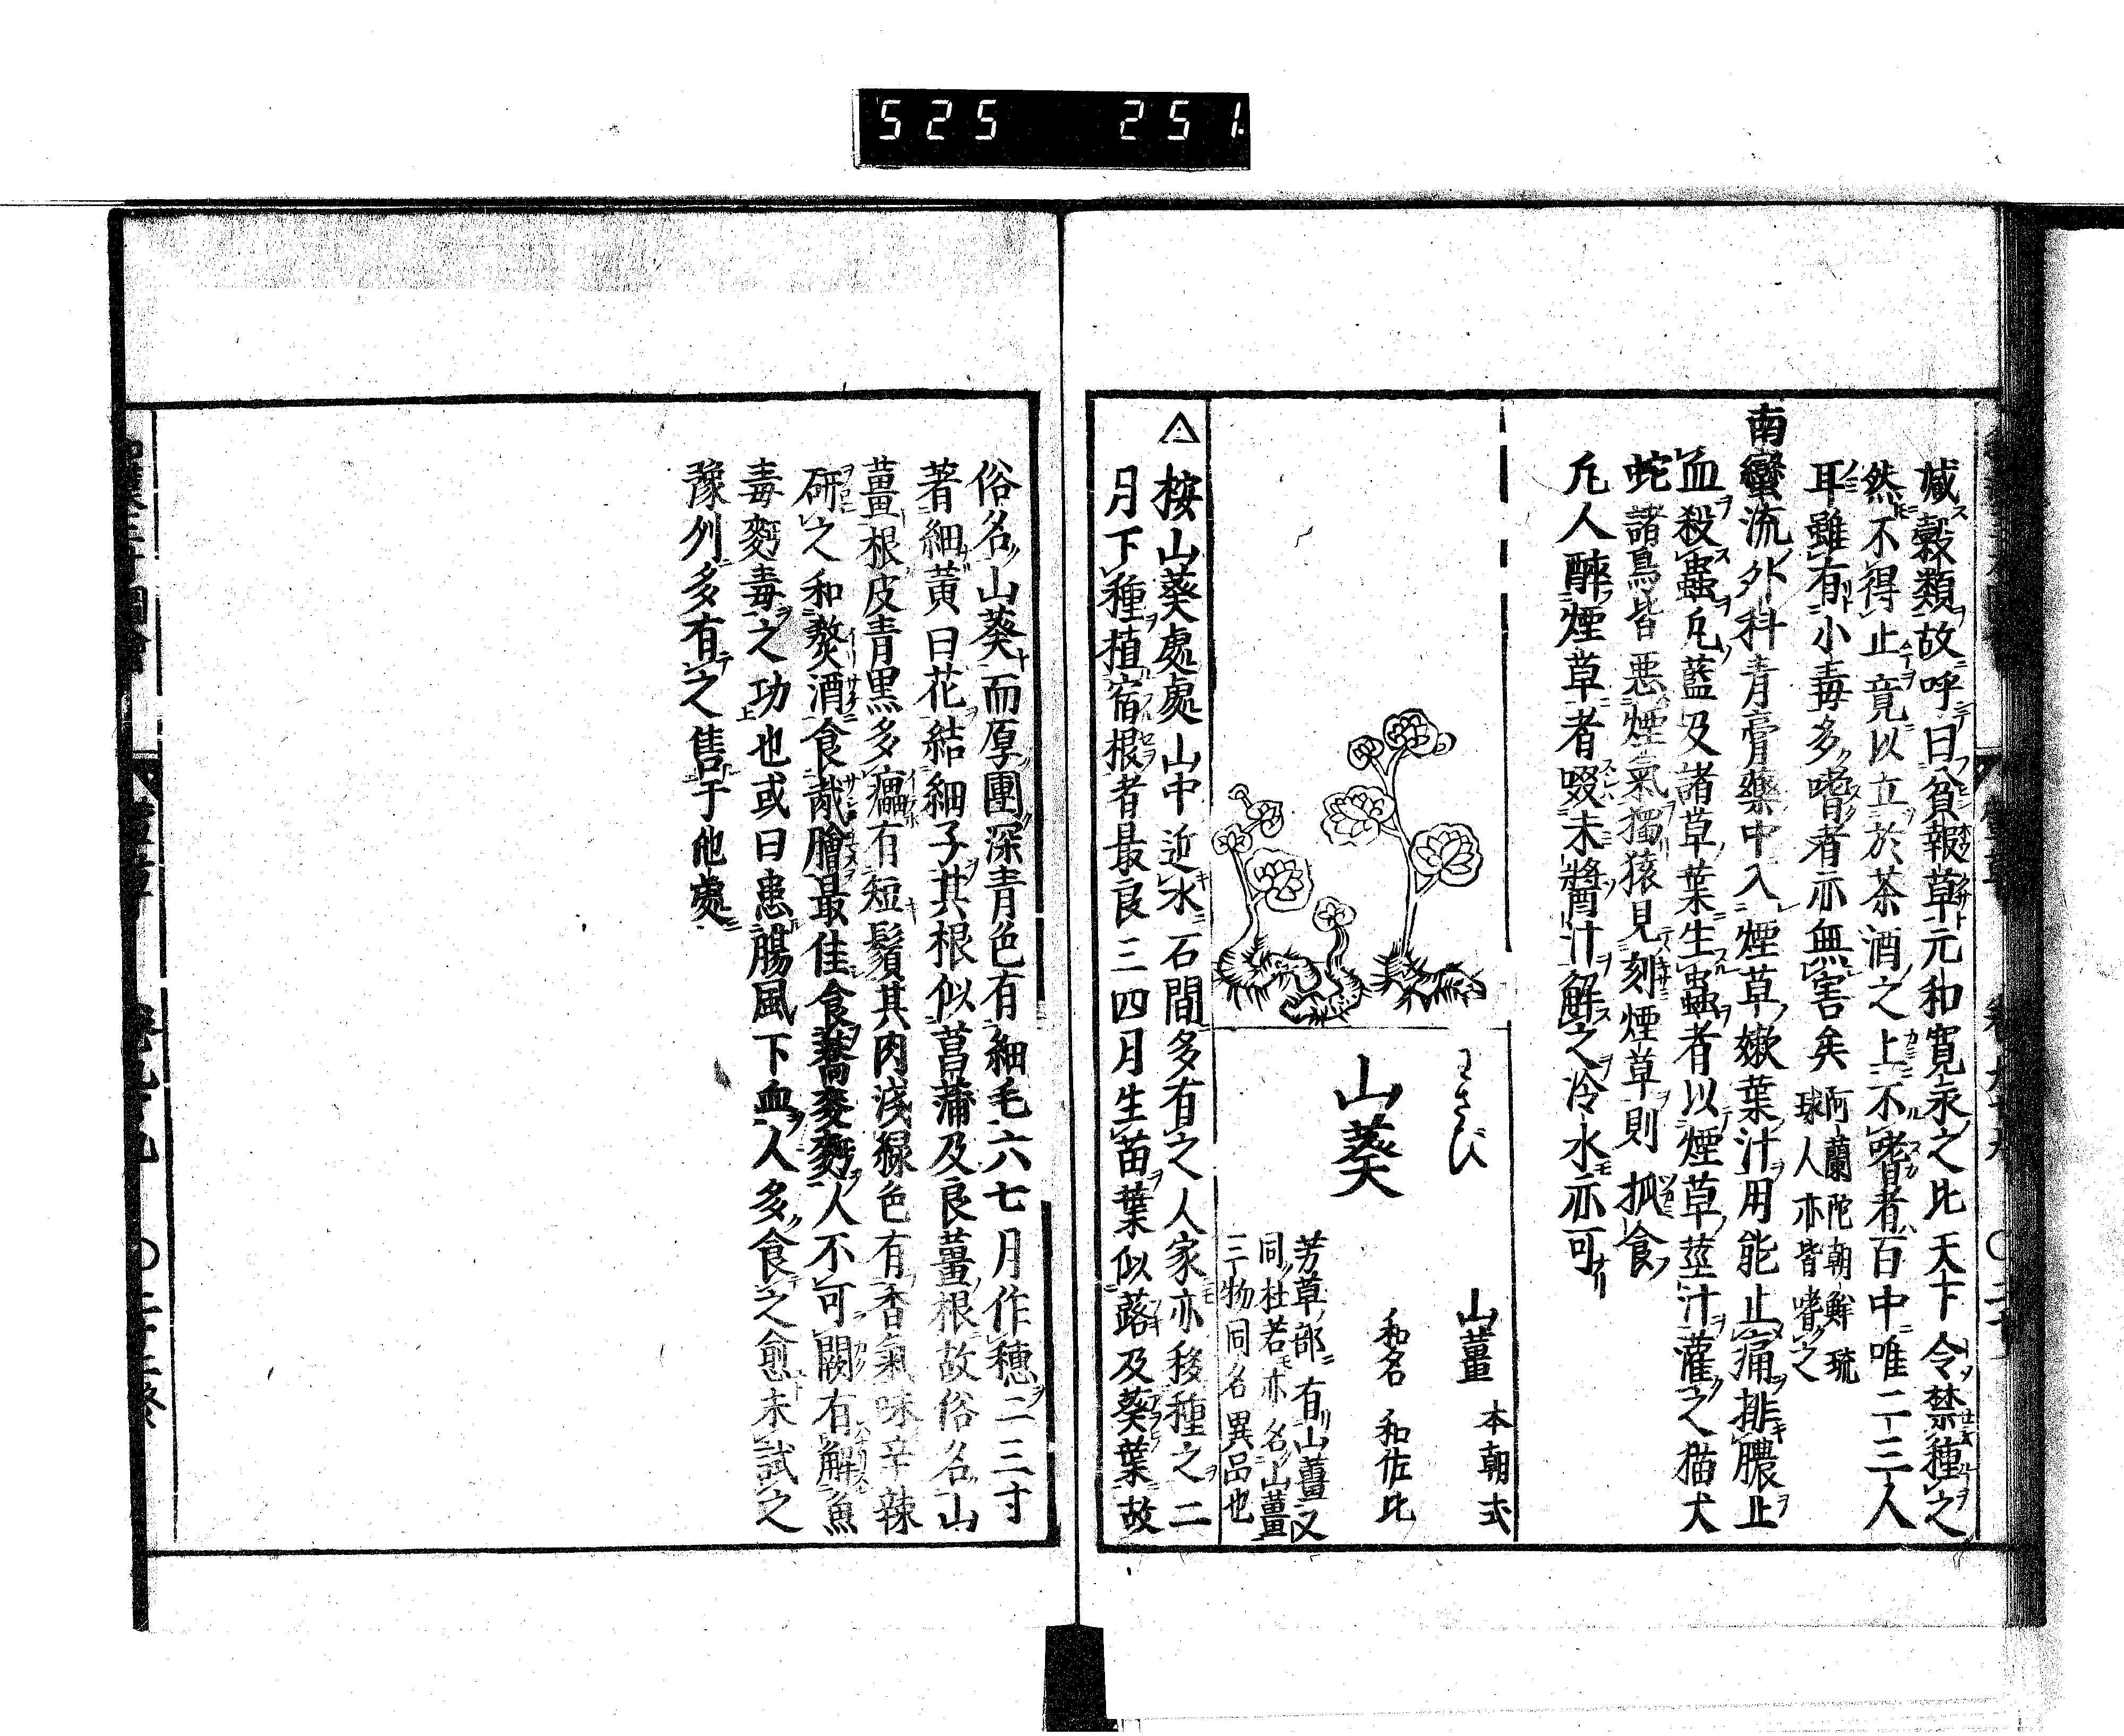 525 251
減穀類故呼曰貧報草元和寬永之比天下令禁種之
然不得止竟以立於茶酒之上不嗜者百中唯二三人
耳雖有小毒多嗜者亦無害矣
阿蘭陀朝鮮琉
球人亦皆嗜之
南蠻流外科青膏藥中入煙草嫩葉汁用能止痛排膿止
血殺蟲凡藍及諸草葉生蟲者以煙草莖汁灌之猫犬
蛇諸鳥皆惡煙氣獨猿見刻煙草則抓食
凡人醉煙草者啜未醬汁解之冷水亦可
わさび
山葵
山薑 本朝式
和名 和佐比
芳草部有山薑又
同杜若亦名山薑
三物同名異品也
△按山葵處處山中近水石間多有之人家亦移種之二
月下種植宿根者最良三四月生苗葉似蕗及葵葉故
俗名山葵而厚團深青色有細毛六七月作穗二三寸
著細黃白花結細子其根似菖蒲及良薑根故俗名山
薑根皮青黑多㿈有短鬚其肉淺綠色有香氣味辛辣
研之和熬酒食胾膾最佳食蕎麥麪人不可闕有解魚
毒麪毒之功也或曰患腸風下血人多食之愈未試之
豫州多有之售于他處